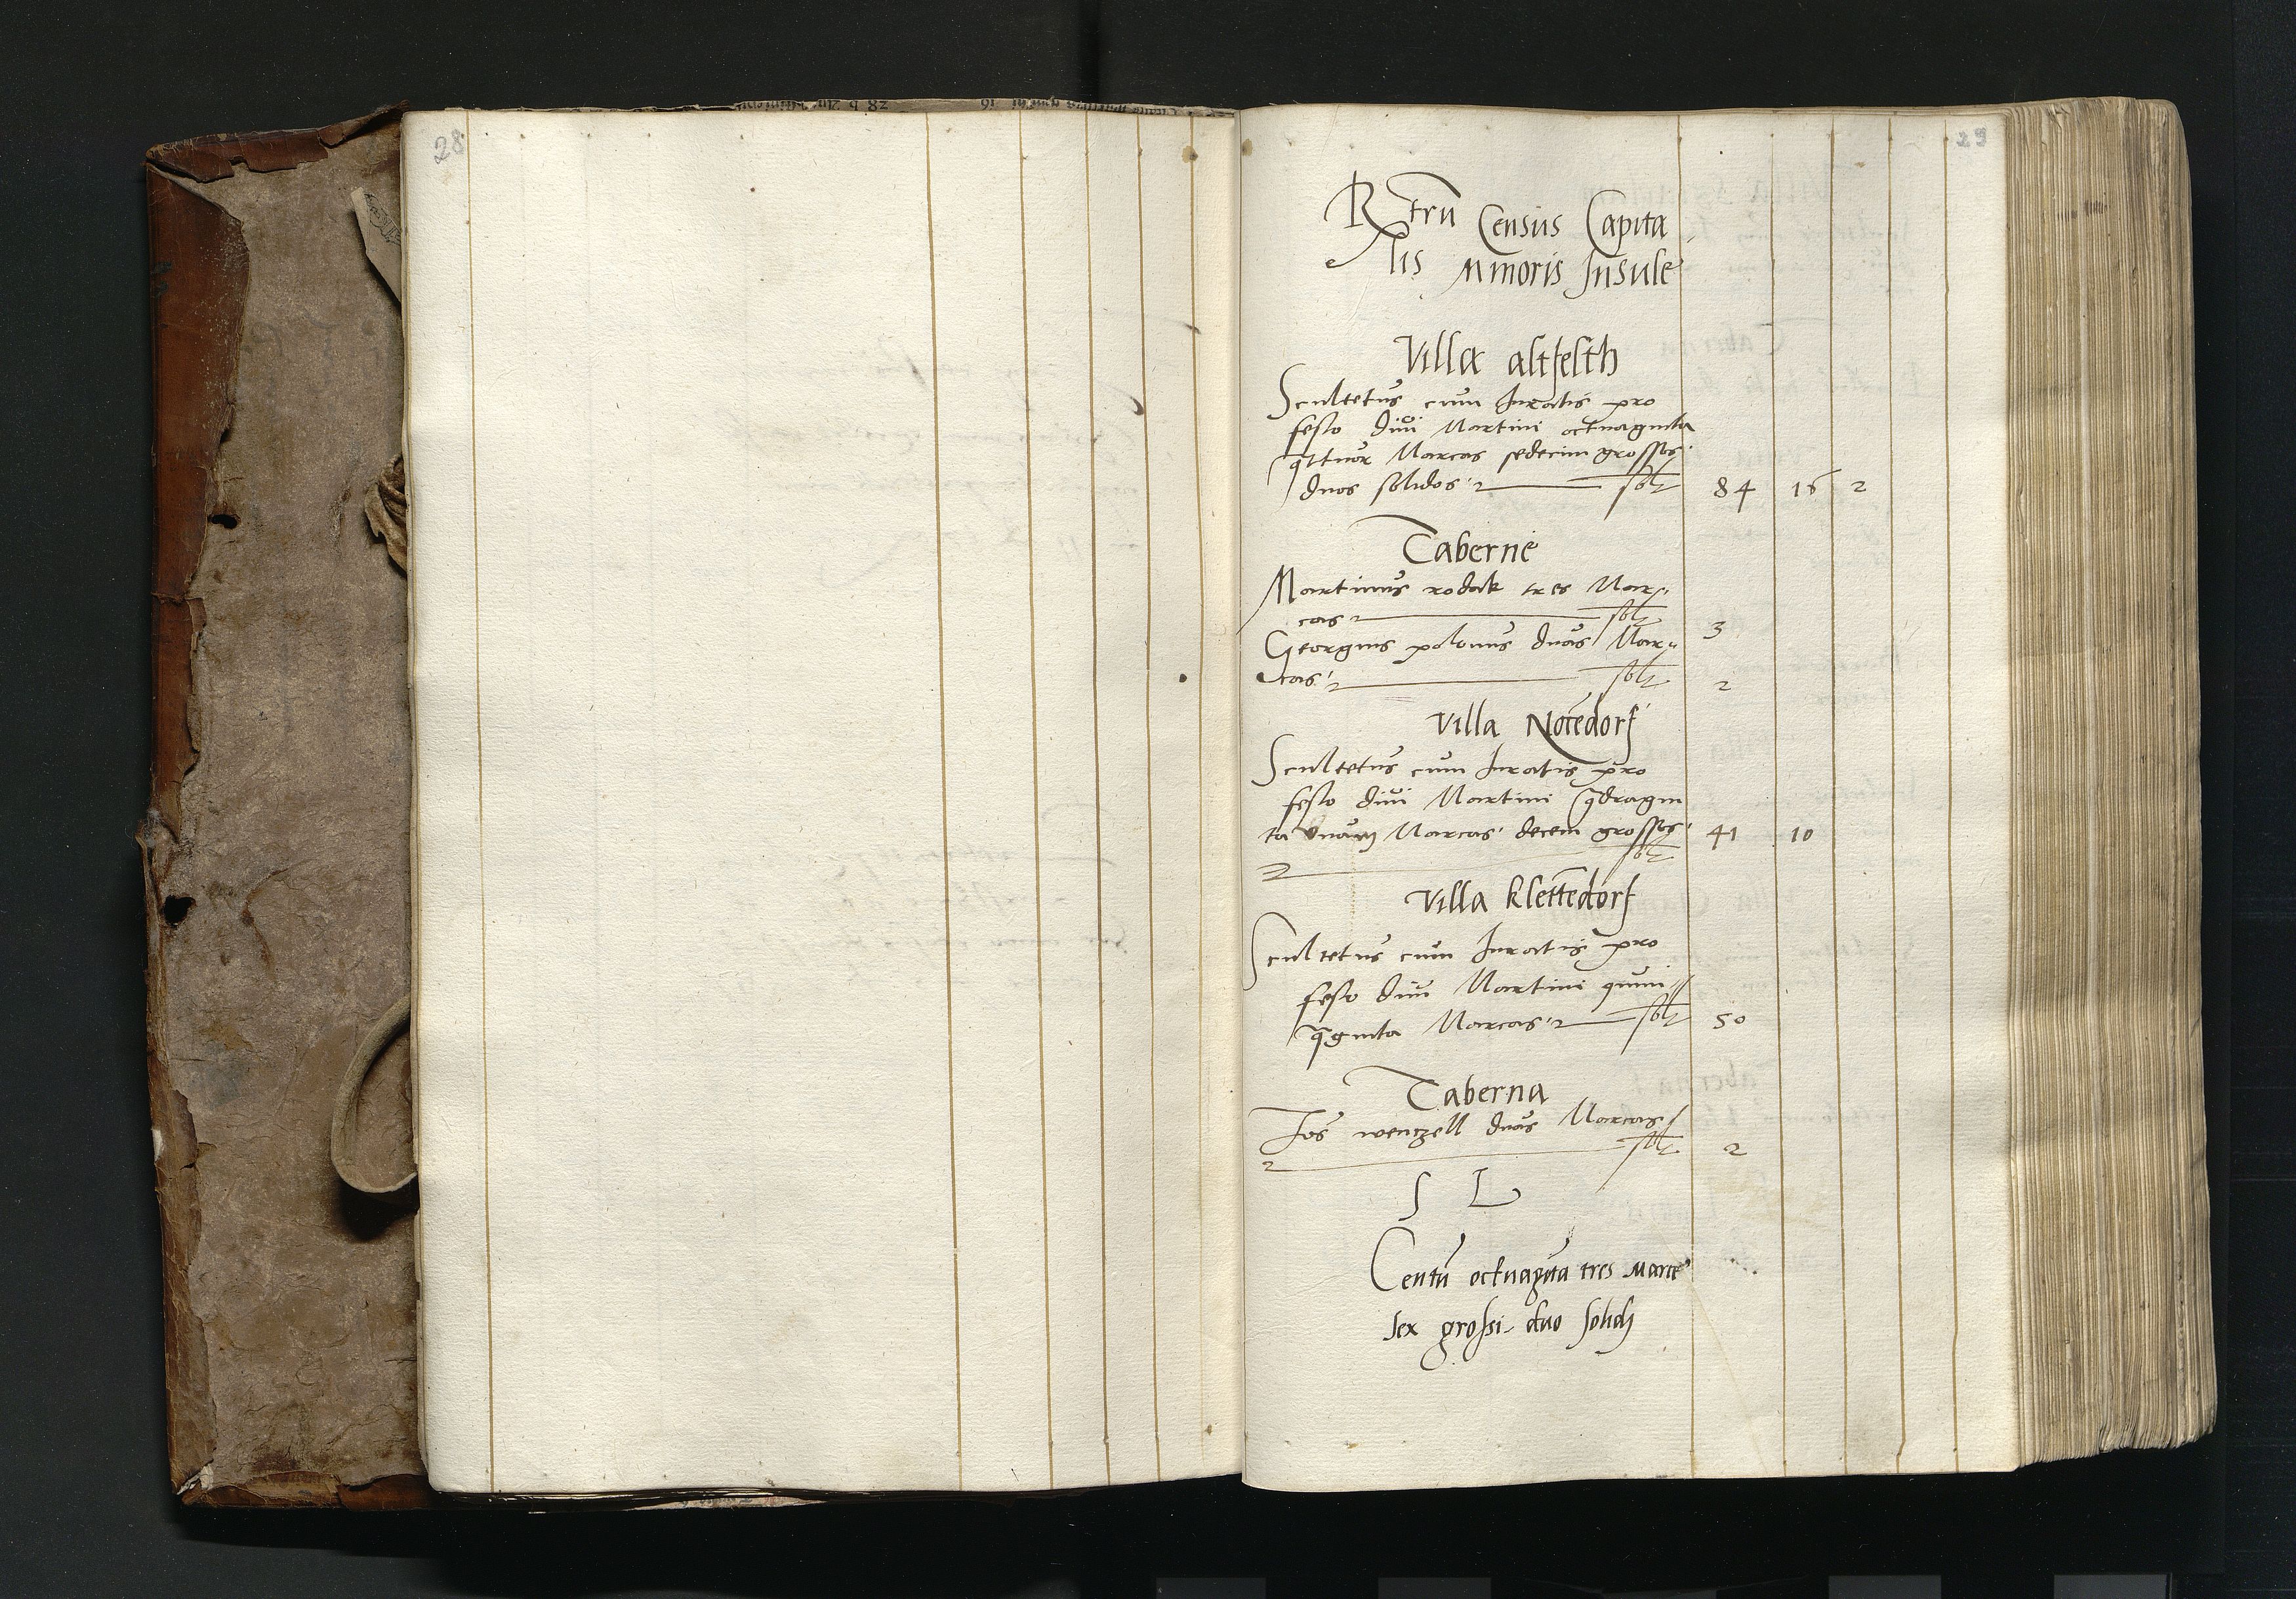 28
29
Rtrũ Censüs Capita
lis Minoris Insule
Villa altfelth
Scultetus cum Iuratis pro
festo diui Martini octuaginta
q̃ttuor Marcas sedecim grossos
duos solidos solt 84 16 2
Taberne
Martinus rodak tres Mar
cas solt 3
Georgius polonus duas Mar
cas solt 2
Villa Notẽdorf
Scultetus cum Iuratis pro
festo diui Martini q̃dragin
ta vnam Marcas decem grossos 41 10
solt
Villa klettẽdorf
Scultetus cum Iuratis pro
festo diui Martini quin
q̃ginta Marcas solt 50
Taberna
Ios wenczell duas Marcas
solt 2
S L
Centũ octuagĩta tres Marce
sex grossi duo solidi